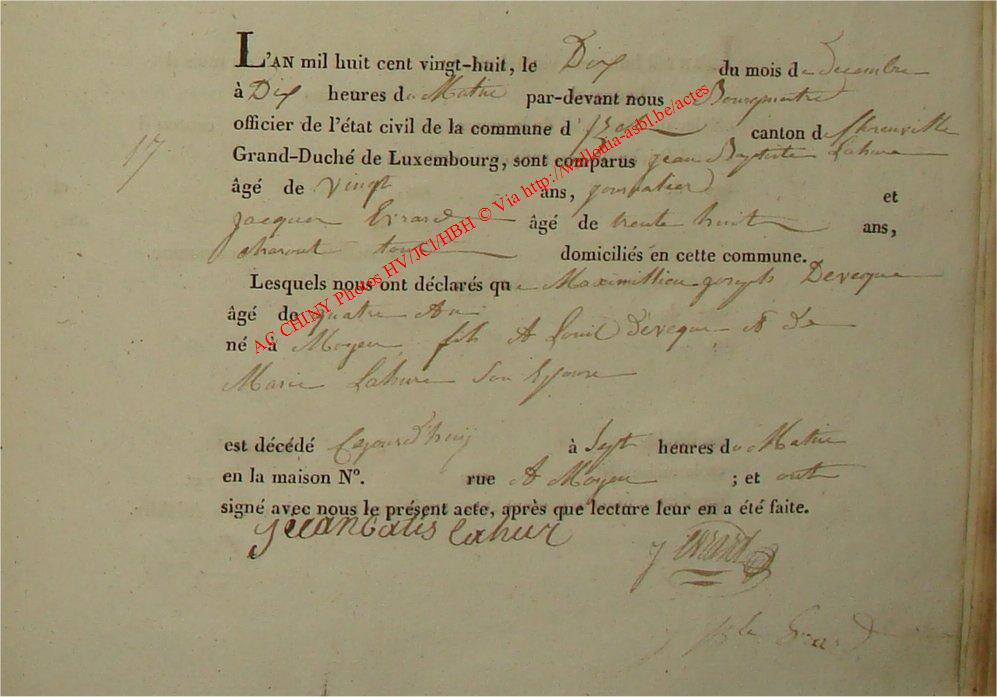 L'AN mil huit cent vingt-huit, le Dix du mois de decembre
à Dix heures du Matin par-devant nous Bourgmestre
officier de l'état civil de la commune d' Izel, canton d
17
Grand-Duché de Luxembourg, sont comparus jean Baptiste Lahure
âgé de vingt ans, journalier et
jacques Evrard âgé de trente huit ans,
domiciliés en cette commune.
Lesquels nous ont déclarés que Maximillien joseph Deveque
âgé de quatre An
né à Moyen fils de Louis deveque et de
Marie Lahure son Epouse
est décédé Cejourd'huij à Sept heures du Matin
en la maison N°. rue de Moyen ; et ont
signé avec nous le présent acte, après que lecture leur en a été faite.
jeeanbatis lahur
j evrard
AC CHINY Photos HV/JCl/HBH © Via http://wallonia-asbl.be/actes